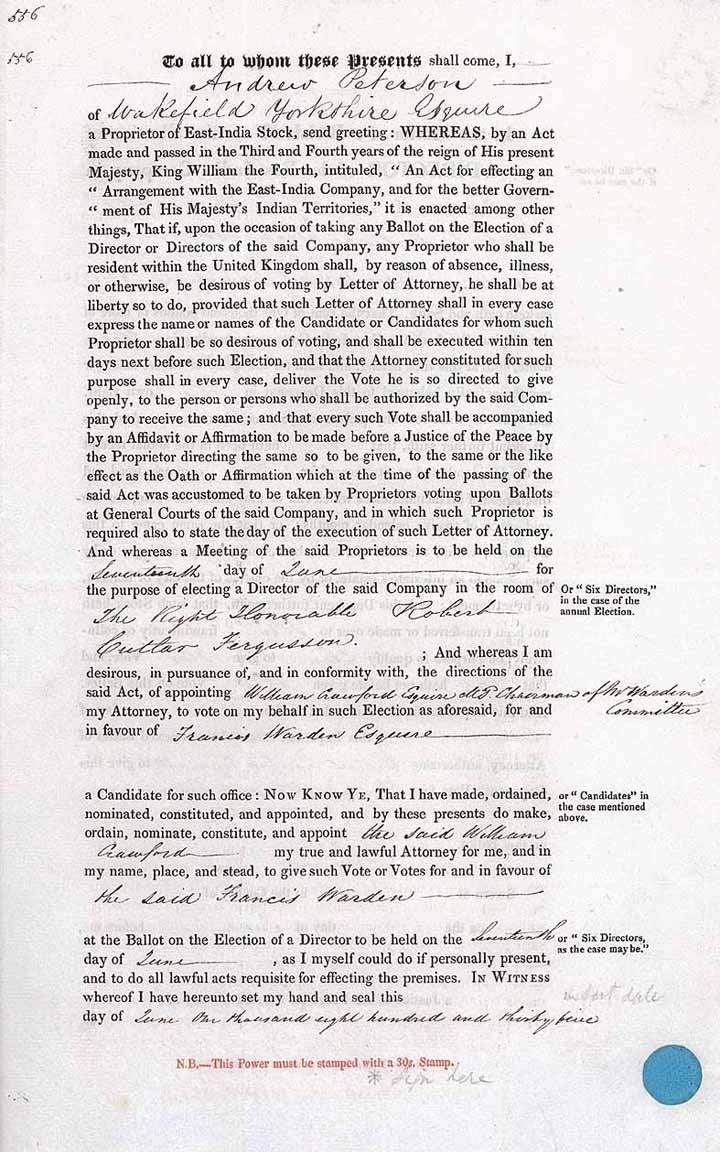 556
556
To all to whom these Presents shall come, I,
Andrew Peterson
of Wakefield Yorkshire Esquire
a Proprietor of East-India Stock, send greeting: WHEREAS, by an Act
made and passed in the Third and Fourth years of the reign of His present
Majesty, King William the Fourth, intituled, "An Act for effecting an
" Arrangement with the East-India Company, and for the better Govern-
" ment of His Majesty's Indian Territories," it is enacted among other
things, That if, upon the occasion of taking any Ballot on the Election of a
Director or Directors of the said Company, any Proprietor who shall be
resident within the United Kingdom shall, by reason of absence, illness,
or otherwise, be desirous of voting by Letter of Attorney, he shall be at
liberty so to do, provided that such Letter of Attorney shall in every case
express the name or names of the Candidate or Candidates for whom such
Proprietor shall be so desirous of voting, and shall be executed within ten
days next before such Election, and that the Attorney constituted for such
purpose shall in every case, deliver the Vote he is so directed to give
openly, to the person or persons who shall be authorized by the said Com-
pany to receive the same; and that every such Vote shall be accompanied
by an Affidavit or Affirmation to be made before a Justice of the Peace by
the Proprietor directing the same so to be given, to the same or the like
effect as the Oath or Affirmation which at the time of the passing of the
said Act was accustomed to be taken by Proprietors voting upon Ballots
at General Courts of the said Company, and in which such Proprietor is
required also to state the day of the execution of such Letter of Attorney.
And whereas a Meeting of the said Proprietors is to be held on the
Seventeenth day of June for
the purpose of electing a Director of the said Company in the room of
Or "Six Directors,"
in the case of the
annual Election.
The Right Honorable Robert
Cutlar Fergusson.
; And whereas I am
desirous, in pursuance of, and in conformity with, the directions of the
said Act, of appointing William Crawford Esquire M.P. Chairman of Mr Warden's
Committee
my Attorney, to vote on my behalf in such Election as aforesaid, for and
in favour of Francis Warden Esquire
a Candidate for such office: NOW KNOW YE, That I have made, ordained,
or "Candidates" in
the case mentioned
above.
nominated, constituted, and appointed, and by these presents do make,
ordain, nominate, constitute, and appoint the said William
Crawford my true and lawful Attorney for me, and in
my name, place, and stead, to give such Vote or Votes for and in favour of
the said Francis Warden
at the Ballot on the Election of a Director to be held on the Seventeenth
or "Six Directors,
as the case may be."
day of June , as I myself could do if personally present,
and to do all lawful acts requisite for effecting the premises. IN WITNESS
whereof I have hereunto set my hand and seal this
insert date
day of June One thousand eight hundred and thirty five
N.B.—This Power must be stamped with a 30s. Stamp.
* Sign here